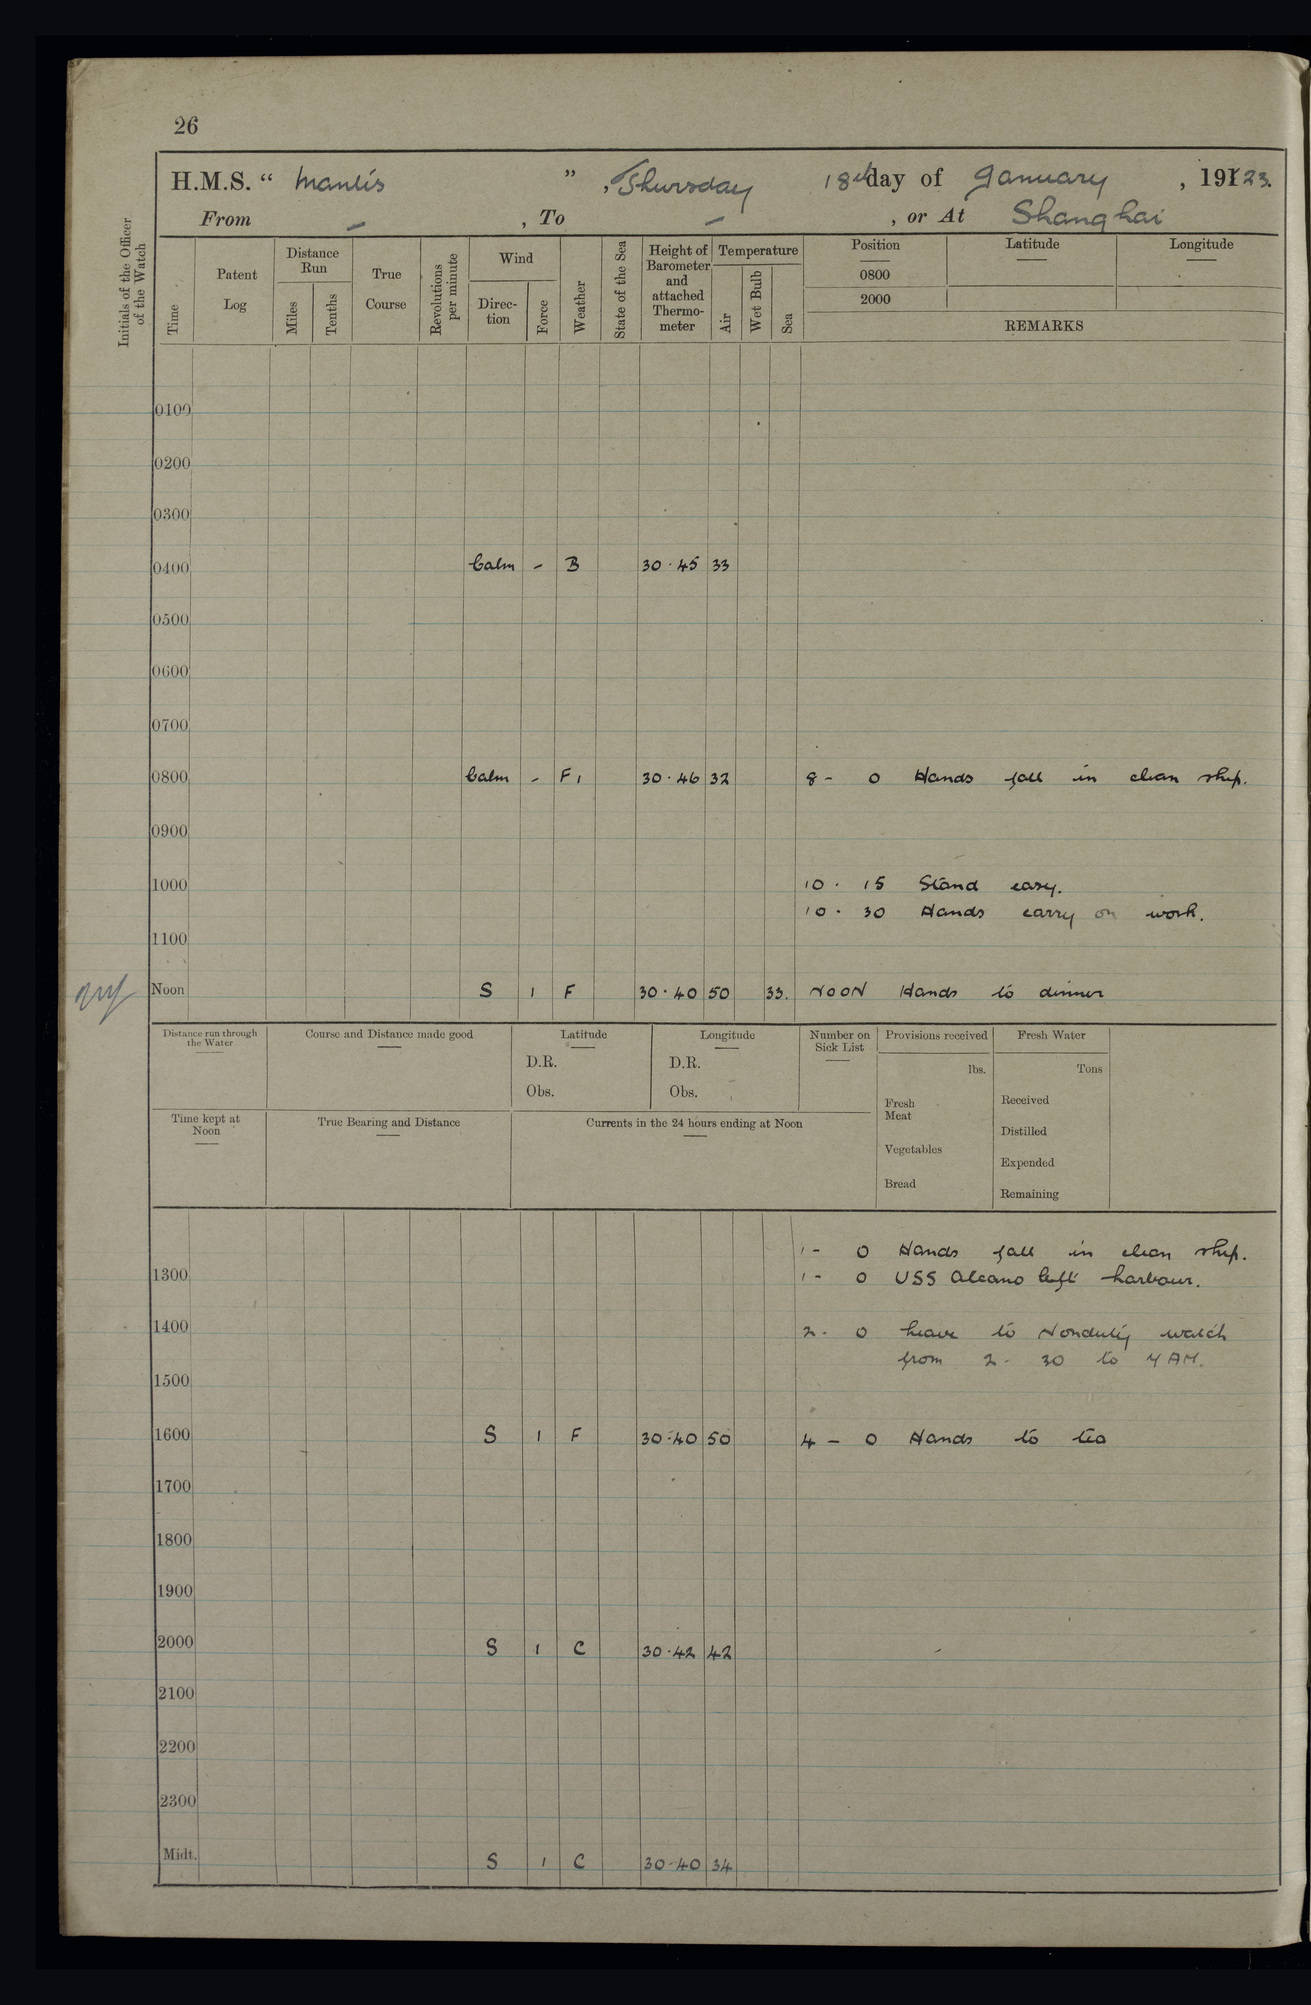 26
H.M.S. " Mantis " , Thursday 18th day of January , 1923.
From — , To — , or At Shanghai
Initials of the Officer of the Watch
Time
Patent Log
Distance Run
Miles
Tenths
True Course
Revolutions per minute
Wind
Direction
Force
Weather
State of the Sea
Height of Barometer and attached Thermometer
Temperature
Air
Wet Bulb
Sea
Position Latitude Longitude
0800
2000
REMARKS
0100
0200
0300
0400 Calm - B 30.45 33
0500
0600
0700
0800 Calm - F, 30.46 32 8 - 0 Hands fall in clean ship.
0900
1000 10. 15 Stand easy.
10. 30 Hands carry on work.
1100
Noon S 1 F 30.40 50 33. NOON Hands to dinner
Distance run through the Water
Course and Distance made good
Latitude
D.R.
Obs.
Longitude
D.R.
Obs.
Number on Sick List
Provisions received
lbs.
Fresh Meat
Vegetables
Bread
Fresh Water
Tons
Received
Distilled
Expended
Remaining
Time kept at Noon
True Bearing and Distance
Currents in the 24 hours ending at Noon
1 - 0 Hands fall in clean ship.
1300 1 - 0 USS Alcano left harbour.
1400 2. 0 leave to Nonduty watch
from 2. 30 to 7 AM.
1500
1600 S 1 F 30.40 50 4 - 0 Hands to tea
1700
1800
1900
2000 S 1 C 30.42 42
2100
2200
2300
Midt. S 1 C 30.40 34